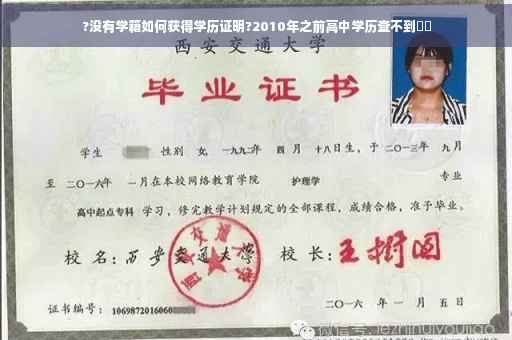 ?没有学籍如何获得学历证明?2010年之前高中学历查不到▯▯
西安交通大学
毕业证书
学生 性别 女,一九九二年 四月 十八日生,于二〇一三年 九月
至 二〇一六年 一月在本校网络教育学院 护理学 专业
高中起点专科 学习,修完教学计划规定的全部课程,成绩合格,准予毕业。
校名:西安交通大学 校长:王树国
西安交通大学
证书编号: 1069872016060
二〇一六年 一月 五日
微信号:jiezhinuiyoujiao